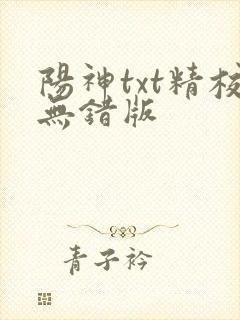 陽神txt精校
無錯版
青子衿